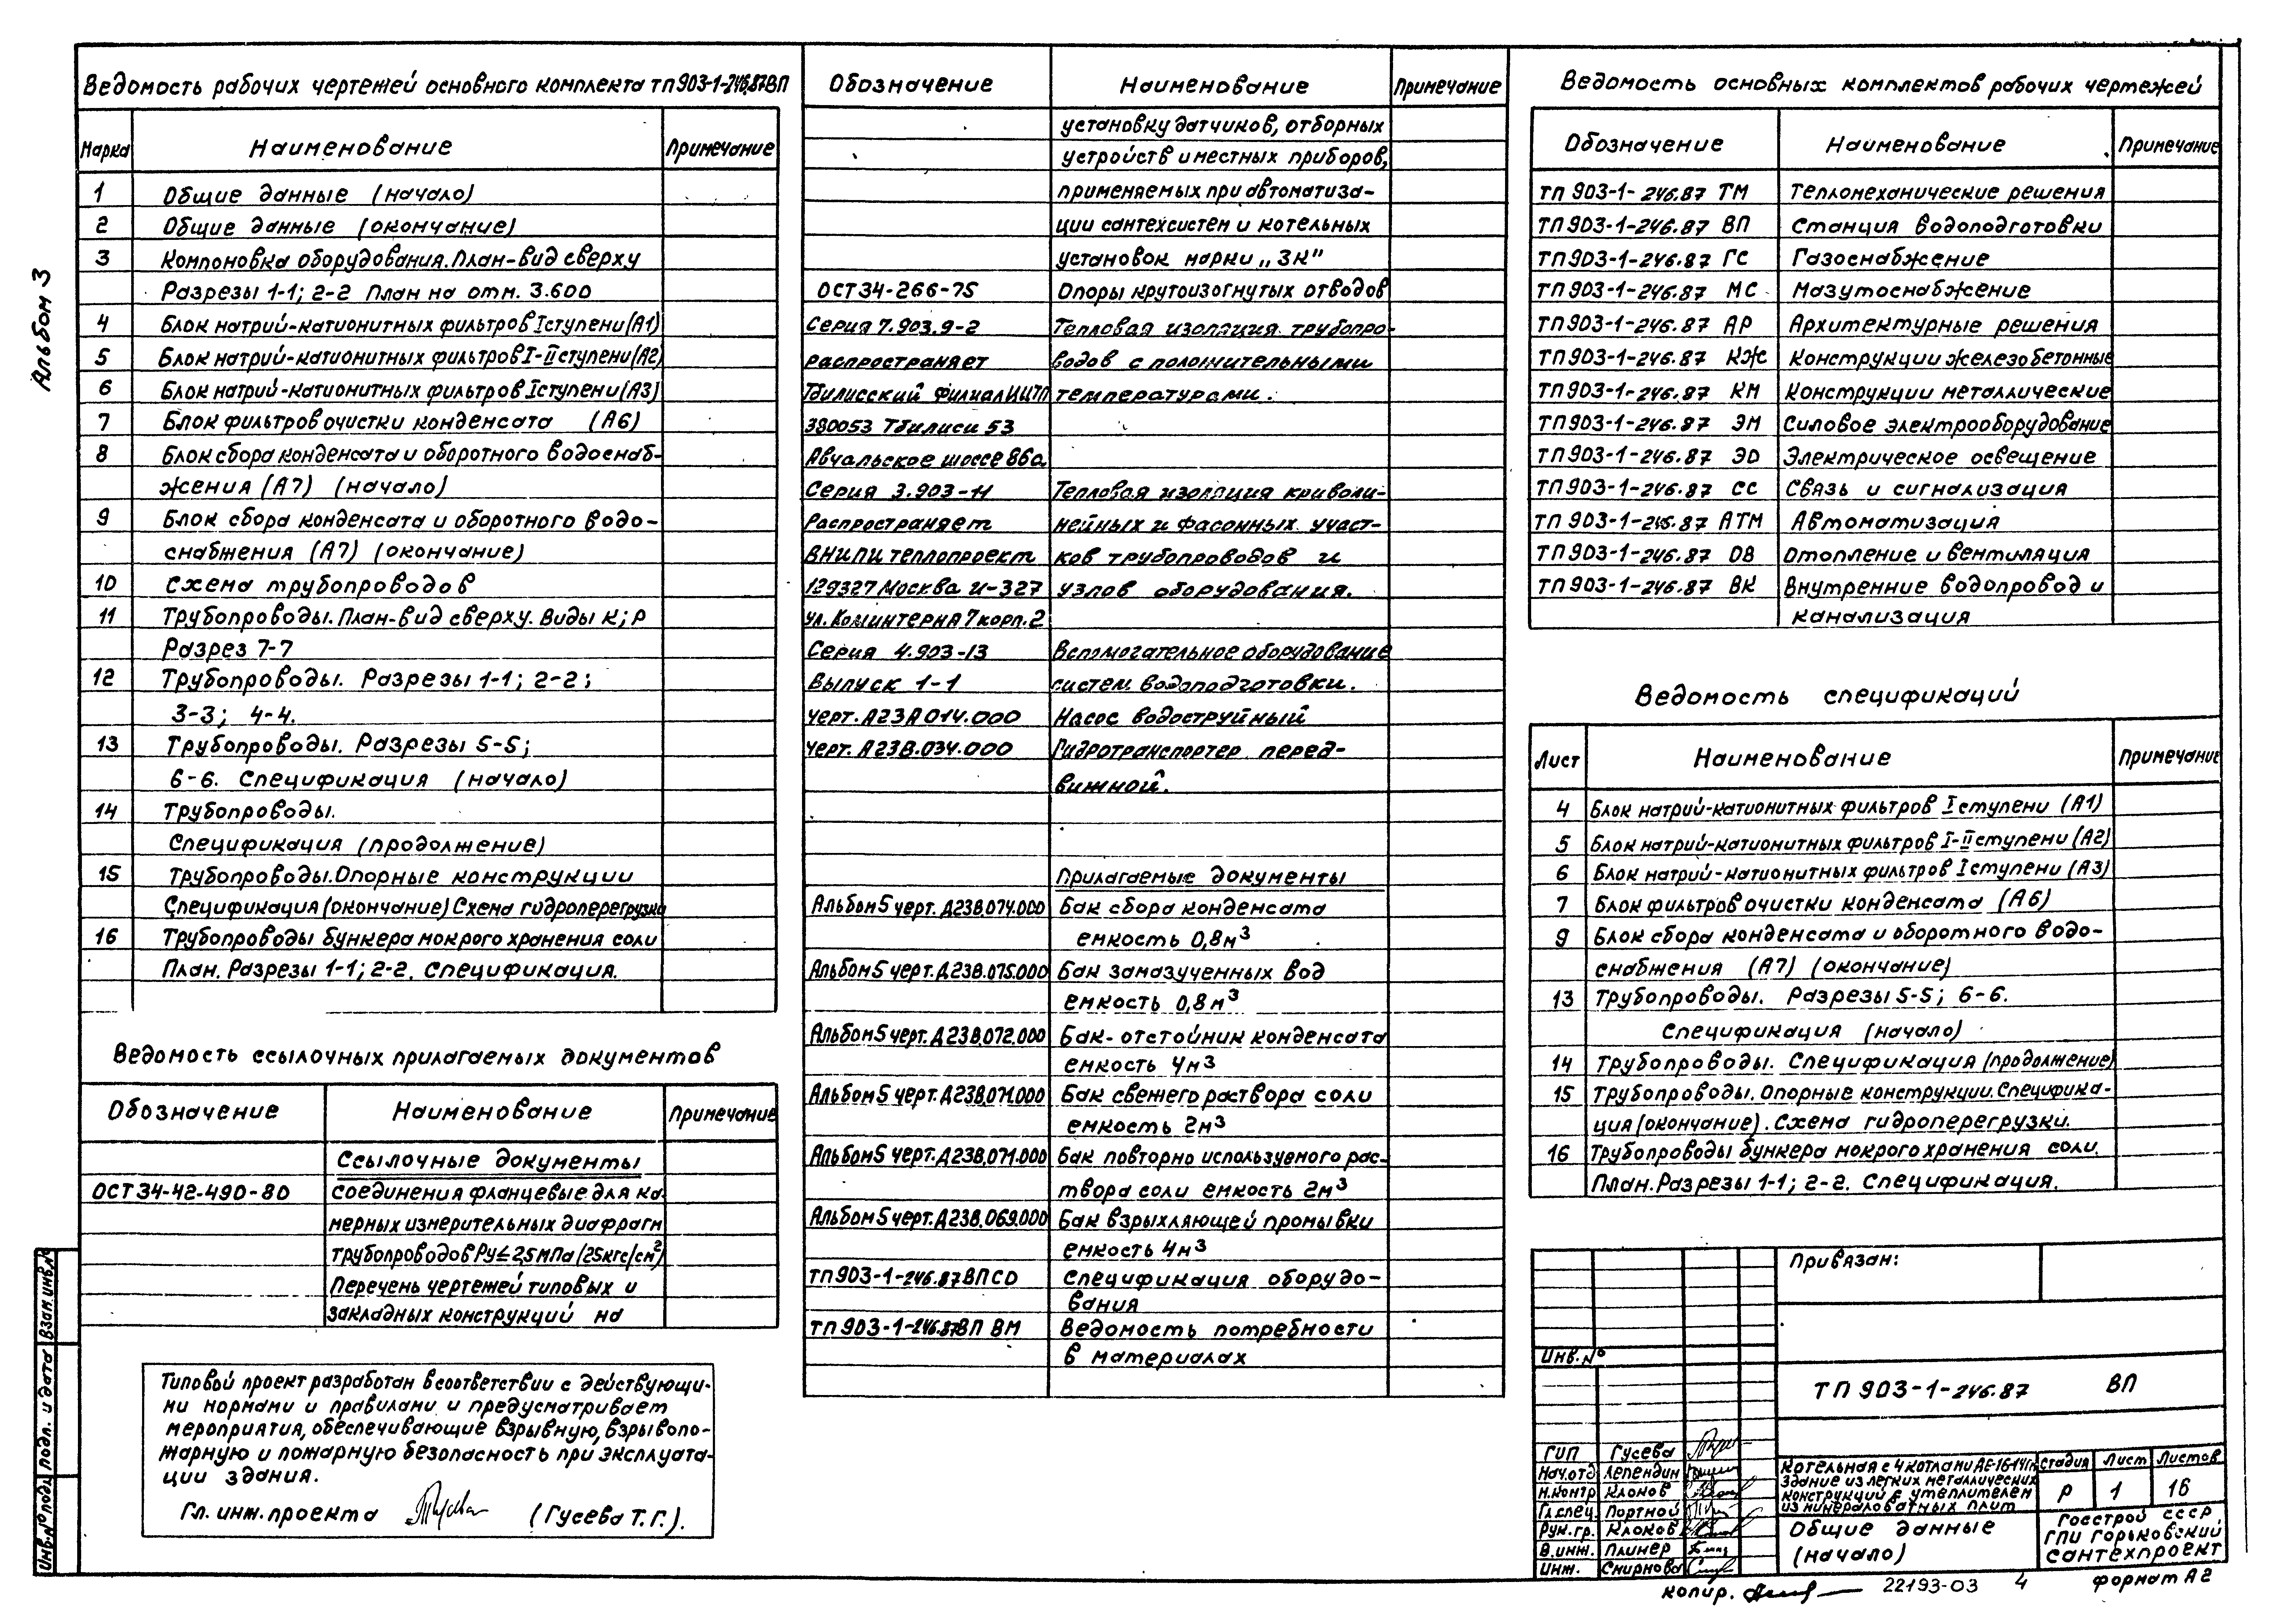 Альбом 3
Ведомость рабочих чертежей основного комплекта ТП903-1-246.87ВП
Марка Наименование Примечание
1 Общие данные (начало)
2 Общие данные (окончание)
3 Компоновка оборудования. План-вид сверху
Разрезы 1-1; 2-2 План на отм. 3.600
4 Блок натрий-катионитных фильтров I ступени (А1)
5 Блок натрий-катионитных фильтров I-II ступени (А2)
6 Блок натрий-катионитных фильтров I ступени (А3)
7 Блок фильтров очистки конденсата (А6)
8 Блок сбора конденсата и оборотного водоснаб-
жения (А7) (начало)
9 Блок сбора конденсата и оборотного водо-
снабжения (А7) (окончание)
10 Схема трубопроводов
11 Трубопроводы. План-вид сверху. Виды К; Р
Разрез 7-7
12 Трубопроводы. Разрезы 1-1; 2-2;
3-3; 4-4.
13 Трубопроводы. Разрезы 5-5;
6-6. Спецификация (начало)
14 Трубопроводы.
Спецификация (продолжение)
15 Трубопроводы. Опорные конструкции
Спецификация (окончание) Схема гидроперегрузки
16 Трубопроводы бункера мокрого хранения соли
План. Разрезы 1-1; 2-2. Спецификация.
Ведомость ссылочных прилагаемых документов
Обозначение Наименование Примечание
Ссылочные документы
ОСТ 34-42-490-80 Соединения фланцевые для ка-
мерных измерительных диафрагм
трубопроводов Ру≤2,5МПа (25кгс/см²)
Перечень чертежей типовых и
закладных конструкций на
Типовой проект разработан в соответствии с действующи-
ми нормами и правилами и предусматривает
мероприятия, обеспечивающие взрывную, взрывопо-
жарную и пожарную безопасность при эксплуата-
ции здания.
Гл. инж. проекта (Гусева Т.Г.).
Обозначение Наименование Примечание
установку датчиков, отборных
устройств и местных приборов,
применяемых при автоматиза-
ции сантехсистем и котельных
установок марки „ЗК"
ОСТ34-266-75 Опоры крутоизогнутых отводов
Серия 7.903.9-2 Тепловая изоляция трубопро-
распространяет водов с положительными
Тбилисский филиал ЦИТП температурами.
380053 Тбилиси 53
Авчальское шоссе 86а
Серия 3.903-11 Тепловая изоляция криволи-
Распространяет нейных и фасонных участ-
ВНИПИ теплопроект ков трубопроводов и
129327 Москва И-327 узлов оборудования.
ул. Коминтерна 7 корп.2
Серия 4.903-13 Вспомогательное оборудование
Выпуск 1-1 систем водоподготовки.
черт. А23А014.000 Насос водоструйный
черт. А23В.034.000 Гидротранспортер перед-
вижной.
Прилагаемые документы
Альбом 5 черт. Д23В.074.000 Бак сбора конденсата
емкость 0,8м³
Альбом 5 черт. Д23В.075.000 Бак замазученных вод
емкость 0,8м³
Альбом 5 черт. Д23В.072.000 Бак-отстойник конденсата
емкость 4м³
Альбом 5 черт. Д23В.071.000 Бак свежего раствора соли
емкость 2м³
Альбом 5 черт. Д23В.071.000 Бак повторно используемого рас-
твора соли емкость 2м³
Альбом 5 черт. Д23В.069.000 Бак взрыхляющей промывки
емкость 4м³
ТП903-1-246.87ВПСО Спецификация оборудо-
вания
ТП903-1-246.87ВП ВМ Ведомость потребности
в материалах
Ведомость основных комплектов рабочих чертежей
Обозначение Наименование Примечание
ТП 903-1-246.87 ТМ Тепломеханические решения
ТП903-1-246.87 ВП Станция водоподготовки
ТП903-1-246.87 ГС Газоснабжение
ТП903-1-246.87 МС Мазутоснабжение
ТП903-1-246.87 АР Архитектурные решения
ТП903-1-246.87 КЖ Конструкции железобетонные
ТП903-1-246.87 КМ Конструкции металлические
ТП903-1-246.87 ЭМ Силовое электрооборудование
ТП903-1-246.87 ЭО Электрическое освещение
ТП903-1-246.87 СС Связь и сигнализация
ТП 903-1-246.87 АТМ Автоматизация
ТП903-1-246.87 ОВ Отопление и вентиляция
ТП903-1-246.87 ВК Внутренние водопровод и
канализация
Ведомость спецификаций
Лист Наименование Примечание
4 Блок натрий-катионитных фильтров I ступени (А1)
5 Блок натрий-катионитных фильтров I-II ступени (А2)
6 Блок натрий-катионитных фильтров I ступени (А3)
7 Блок фильтров очистки конденсата (А6)
9 Блок сбора конденсата и оборотного водо-
снабжения (А7) (окончание)
13 Трубопроводы. Разрезы 5-5; 6-6.
Спецификация (начало)
14 Трубопроводы. Спецификация (продолжение)
15 Трубопроводы. Опорные конструкции. Специфика-
ция (окончание). Схема гидроперегрузки.
16 Трубопроводы бункера мокрого хранения соли.
План. Разрезы 1-1; 2-2. Спецификация.
Привязан:
Инв. №
ТП 903-1-246.87 ВП
ГИП Гусева
Нач.отд Лепендин
Н.контр Клоков
Гл.спец. Портной
Рук.гр. Клоков
В.инж. Плинер
Инж. Смирнова
Котельная с 4 котлами ДЕ-16-14гм
Здание из легких металлических
конструкций с утеплителем
из минераловатных плит
Стадия Лист Листов
Р 1 16
Общие данные
(начало)
Госстрой СССР
ГПИ Горьковский
Сантехпроект
Копир. 22193-03 4 формат А2
Взам. инв. №
Подп. и дата
Инв. № подл